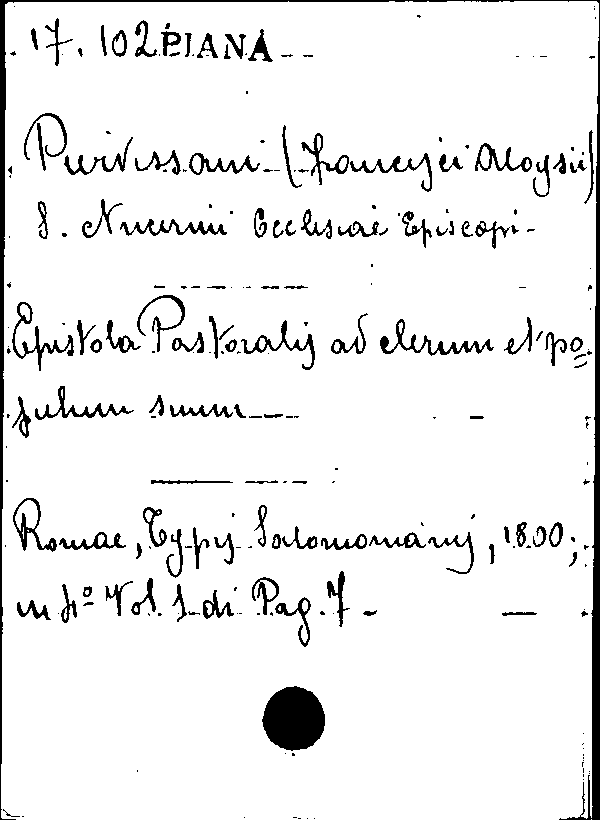 17. 102 PIANA
Piervissani (Francisci Aloysii)
S. Nucerini Ecclesiae Episcopi -
Epistola Pastoralis ad clerum et po=
pulum suum
Romae, Typis Salomonianis, 1800;
in 4º Vol. 1 di Pag. 7 -